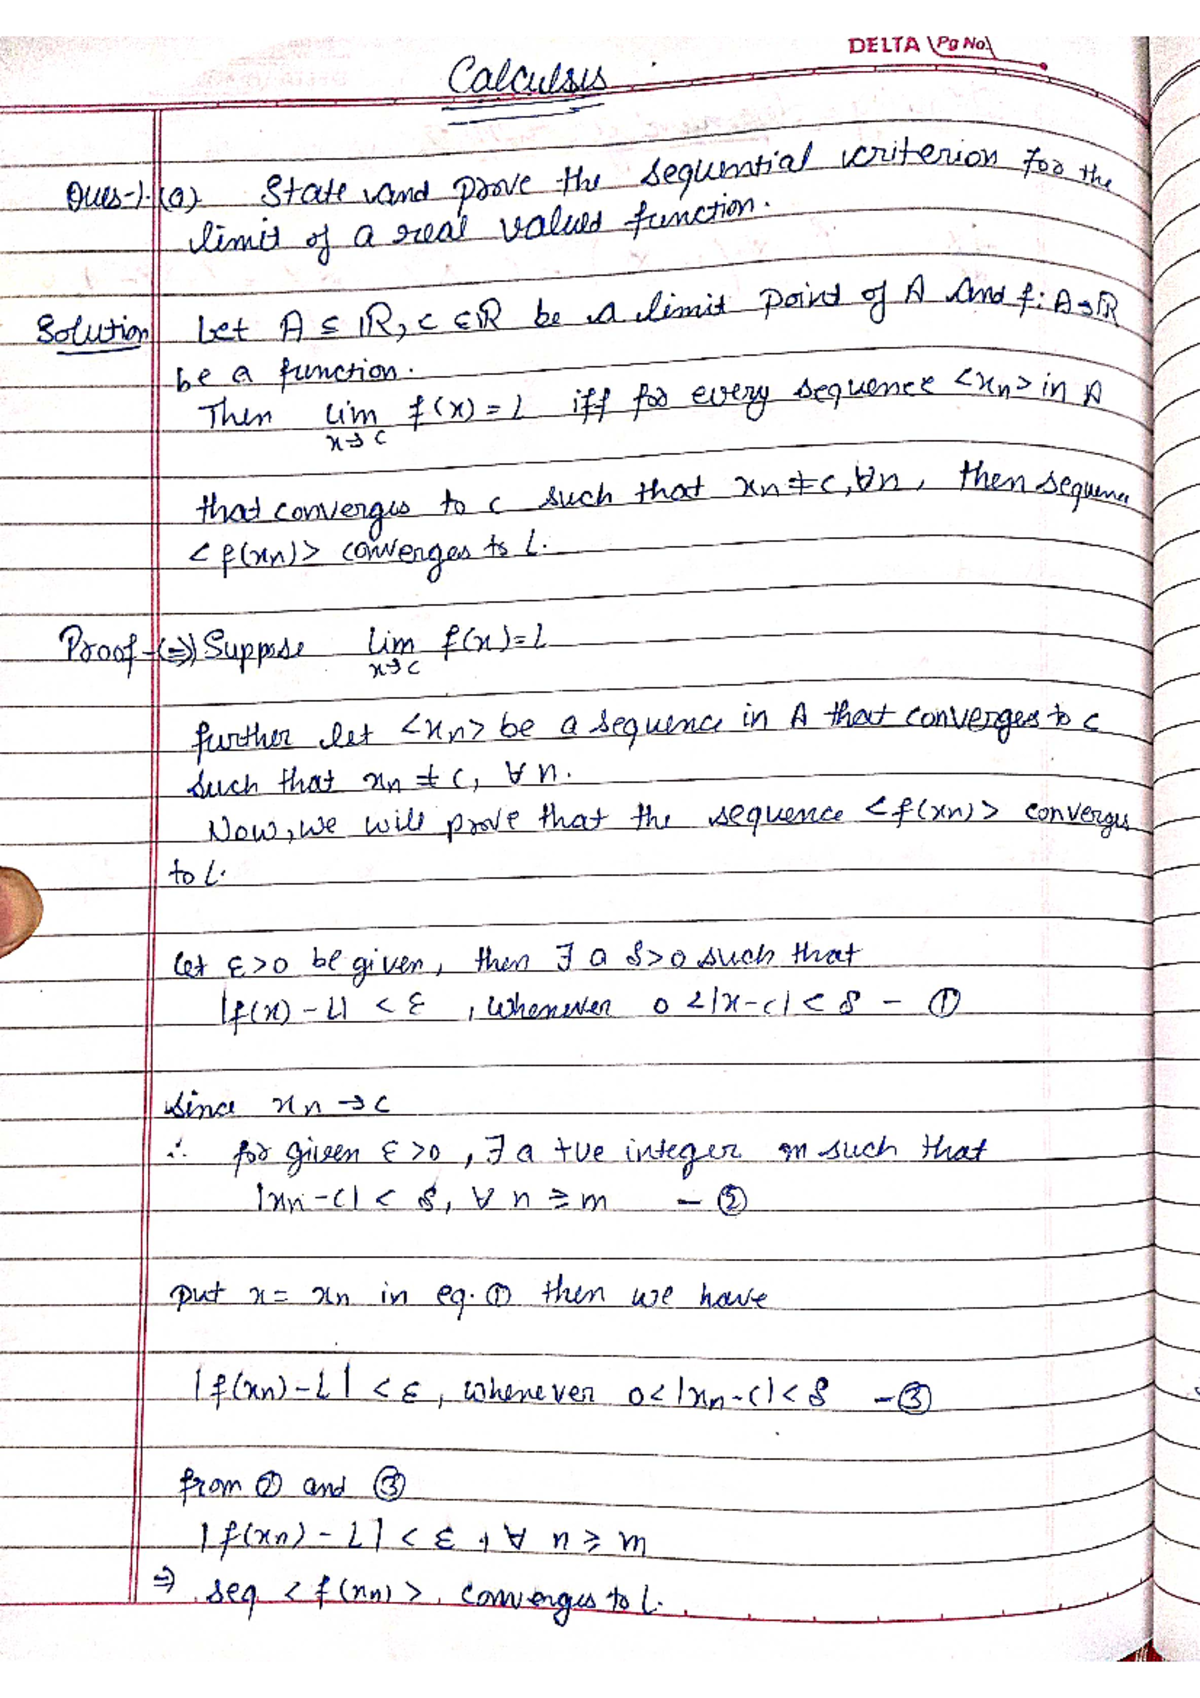 DELTA Pg No.
Calculsis
Ques-1.(a). State and prove the sequential criterion for the
limit of a real valued function.
Solution Let A ⊆ IR, c ∈ IR be a limit point of A and f: A→IR
be a function.
Then lim f(x) = L iff for every sequence <xn> in A
x→c
that converges to c such that xn ≠ c, ∀n, then sequence
<f(xn)> converges to L.
Proof-(⇒) Suppose lim f(x) = L
x→c
further let <xn> be a sequence in A that converges to c
such that xn ≠ c, ∀ n.
Now, we will prove that the sequence <f(xn)> converges
to L.
Let ε>0 be given, then ∃ a δ>0 such that
|f(x) - L| < ε , whenever 0 < |x-c| < δ - ①
since xn → c
∴ for given ε>0, ∃ a +ve integer m such that
|xn - c| < δ, ∀ n ≥ m - ②
put x = xn in eq. ① then we have
|f(xn) - L| < ε, whenever 0 < |xn - c| < δ - ③
from ② and ③
|f(xn) - L| < ε, ∀ n ≥ m
⇒ seq <f(xn)>, converges to L.